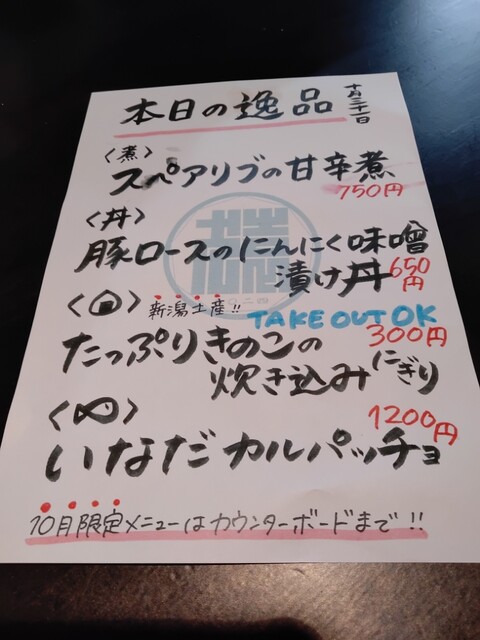 本日の逸品
十月三十一日
〈煮〉
スペアリブの甘辛煮
750円
〈丼〉
豚ロースのにんにく味噌
漬け丼 650円
新潟土産!!
TAKE OUT OK
たっぷりきのこの
300円
炊き込みにぎり
1200円
いなだカルパッチョ
10月限定メニューはカウンターボードまで!!